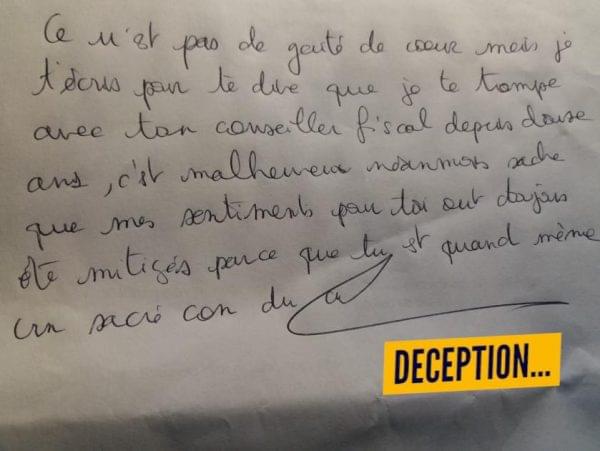 Ce n'est pas de gaité de coeur mais je
t'écris pour te dire que je te trompe
avec ton conseiller fiscal depuis douse
ans, c'est malheureux néanmois sache
que mes sentiments pour toi ont toujours
été mitigés parce que tu est quand même
un sacré con du
DECEPTION...